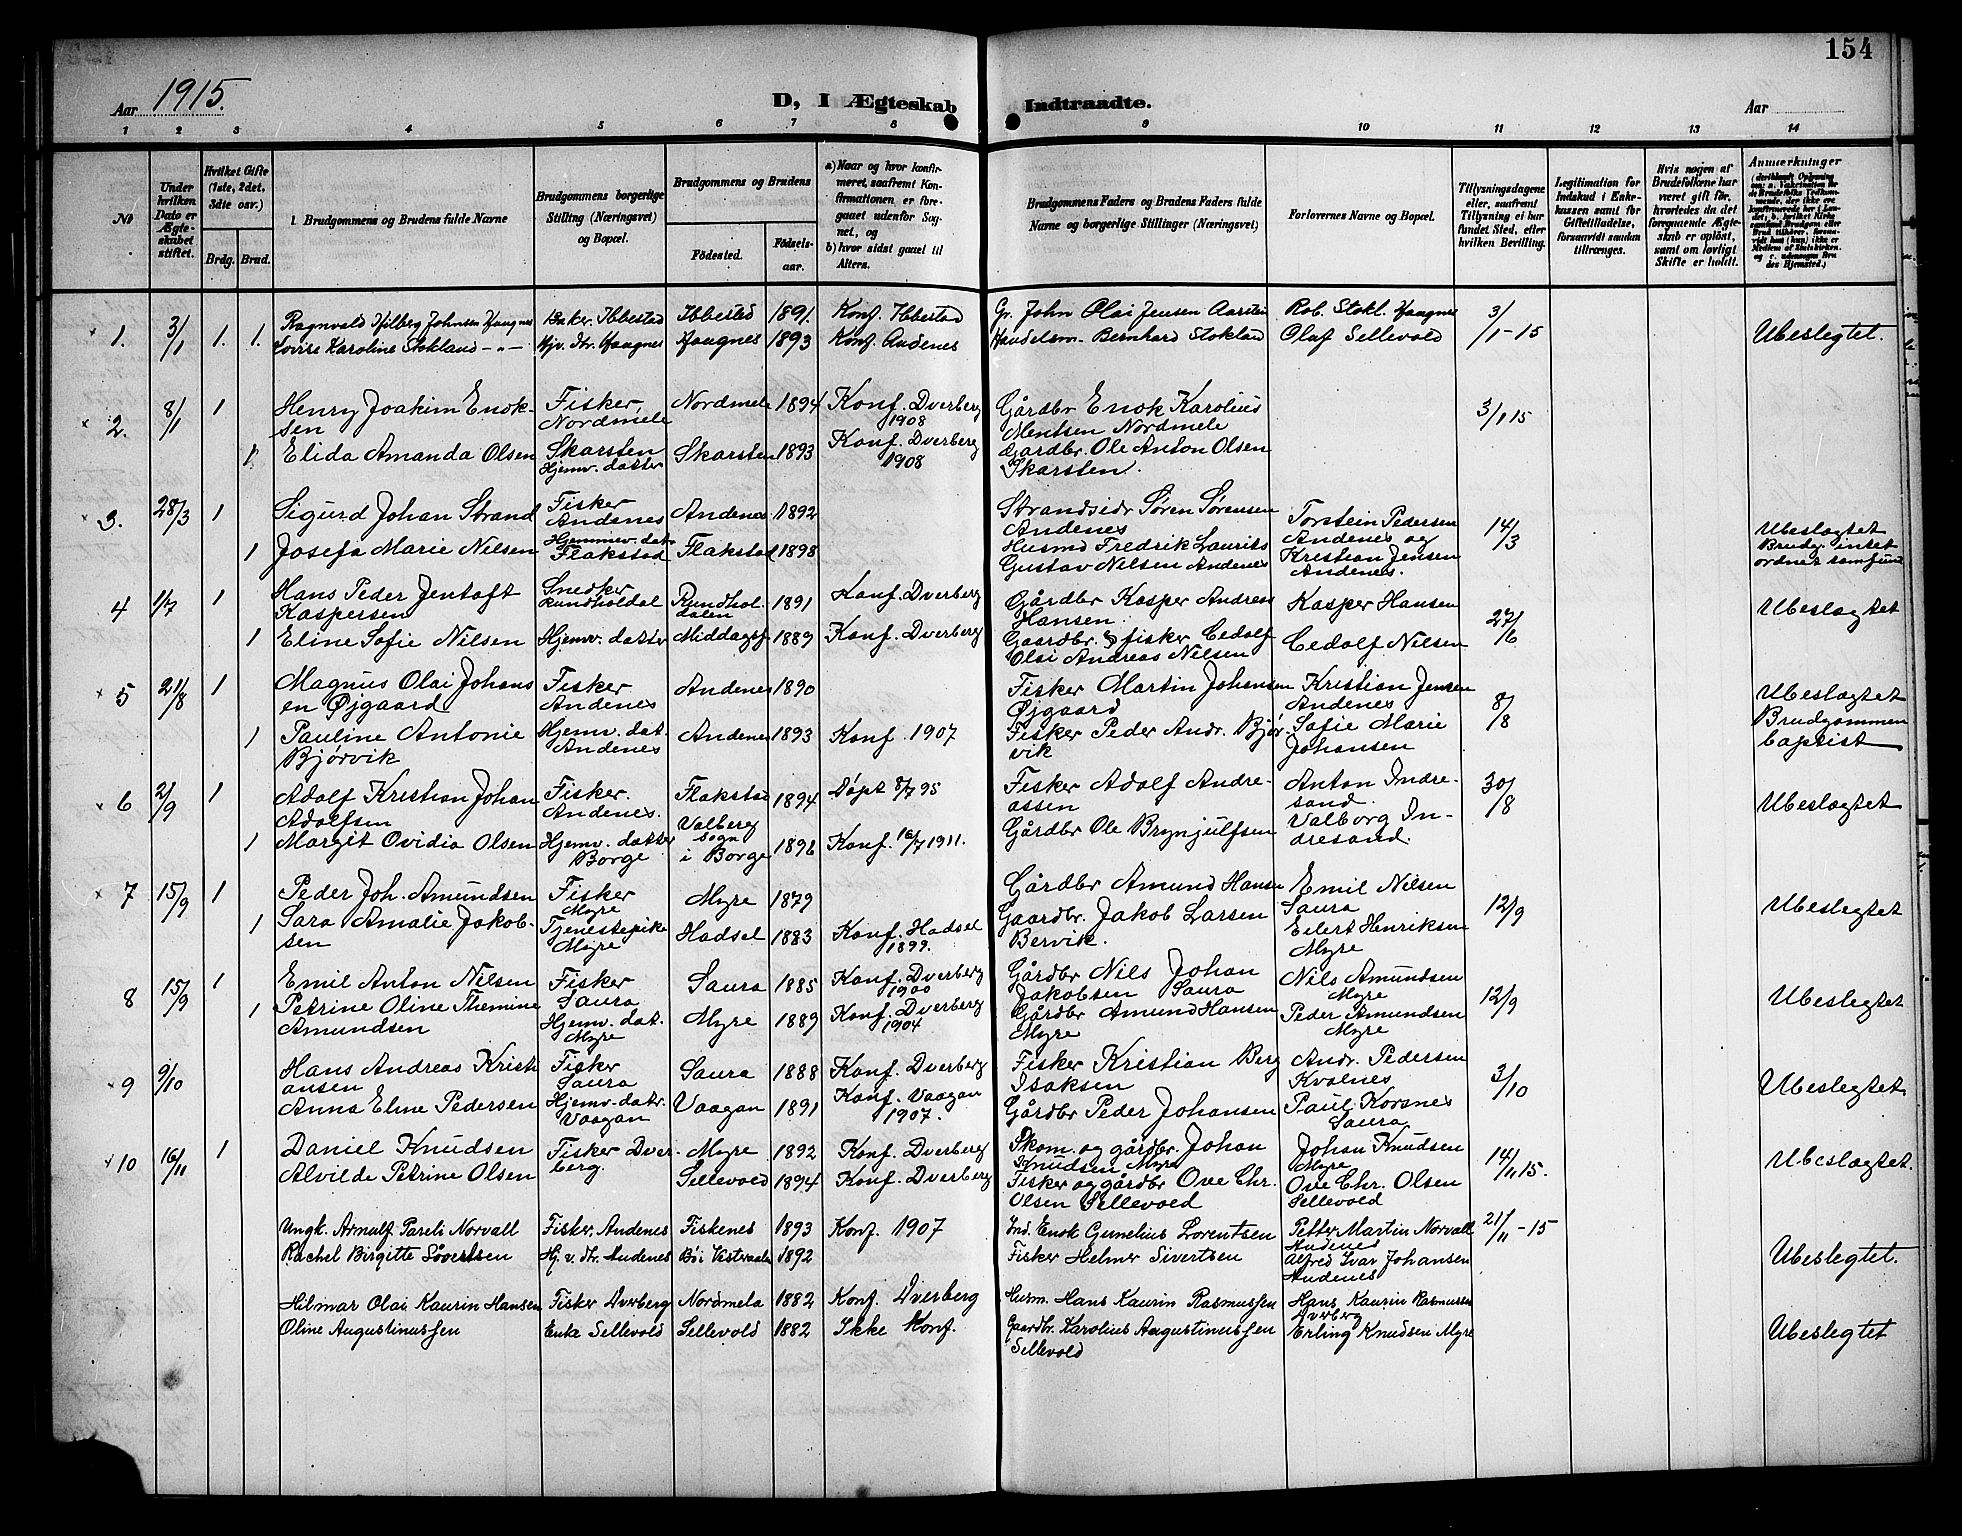 154
Aar 1915.
D, I Ægteskab Indtraadte.
Aar
1 2 3 4 5 6 7 8 9 10 11 12 13 14
No
Under hvilken Dato er Ægteskabet stiftet.
Hvilket Gifte (1ste, 2det, 3die osv.)
Brdg. Brud.
1. Brudgommens og Brudens fulde Navne
Brudgommens borgerlige Stilling (Næringsvei) og Bopæl.
Brudgommens og Brudens
Fødested.
Fødselsaar.
a) Naar og hvor konfirmeret, saafremt Konfirmationen er foregaaet udenfor Sognet, og
b) hvor sidst gaaet til Alters.
Brudgommens Faders og Brudens Faders fulde Navne og borgerlige Stillinger (Næringsvei)
Forlovernes Navne og Bopæl.
Tillysningsdagene eller, saafremt Tillysning ei har fundet Sted, efter hvilken Bevilling.
Legitimation for Indskud i Enkekassen samt for Giftetilladelse, forsaavidt saadan tiltrænges.
Hvis nogen af Brudefolkene har været gift før, hvorledes da det foregaaende Ægteskab er opløst, samt om lovligt Skifte er holdt.
Anmærkninger
1. 3/1 1. 1. Ragnvald Hilberg Johnsen Haugnes Baker, Ibbestad Ibbestad 1891. Konf. Ibbestad Gr. John Olai Jensen Aarsten Rob. Stokl. Haugnes 3/1-15 Ubeslegtet.
Lovise Karoline Stokland -"- Hjv. dtr. Haugnes Haugnes 1893 Konf. Andenes Handelsm. Bernhard Stokland Olaf Sellevold
2. 8/1 1 Henry Joakim Enoksen Fisker, Nordmele Nordmele 1894 Konf. Dverberg 1908 Gårdbr Enok Karolius Mentsen Nordmele 3/1 15
1 Elida Amanda Olsen Skarsten Hjemv. datter Skarsten 1893 Konf. Dverberg 1908 Gardbr. Ole Anton Olsen Skarsten.
3. 28/3 1 Sigurd Johan Strand Fisker Andenes Andenes 1892 Strandsidr Søren Sørensen Andenes Torstein Pedersen Andenes og 14/3 Ubeslægtet
1 Josefa Marie Nilsen Hjemmev. dat. Flakstad Flakstad 1898 Husmd Fredrik Laurits Gustav Nilsen Andenes Kristian Jensen Andenes. Brudg. intet ordnet samfund
4 1/7 1 Hans Peder Jentoft Kaspersen Snedker Rundholdal Rundholdalen 1891 Konf. Dverberg Gårdbr Kasper Andreas Hansen. Kasper Hansen 27/6 Ubeslægtet
1 Eline Sofie Nilsen Hjemv. datter Middagsf 1889 Konf. Dverberg Gaardbr & fisker Cedolf Olai Andreas Nilsen Cedolf Nilsen
5 21/8 1 Magnus Olai Johansen Øjgaard Fisker Andenes Andenes 1890 Fisker Martin Johansen Øjgaard Kristian Jensen Andenes 8/8 Ubeslægtet
1 Pauline Antonie Bjørvik Hjemv. dat. Andenes Andenes 1893 Konf. 1907 Fisker Peder Andr. Bjørvik Sofie Marie Johansen Brudgommen baptist
6 2/9 1 Adolf Kristian Johan Adolfsen Fisker. Andenes. Flakstad 1894 Døpt 8/7 95 Fisker Adolf Andreassen Anton Indresand. 30/8 Ubeslægtet
1 Margit Ovidia Olsen Hjemv. datter Borge Valberg sogn i Borge 1896 Konf. 16/7 1911. Gårdbr Ole Brynjulfsen Valborg Indresand.
7 15/9 1 Peder Joh. Amundsen Fisker Myre Myre 1879 Gårdbr Amund Hansen Emil Nilsen Saura 12/9 Ubeslegtet
1 Sara Amalie Jakobsen Tjenestepike Myre Hadsel 1883 Konf. Hadsel 1899. Gaardbr. Jakob Larsen Bervik. Eilert Henriksen Myre
8 15/9 1 Emil Anton Nilsen Fisker Saura Saura 1885 Konf. Dverberg 1900 Gårdbr Nils Johan Jakobsen Saura Nils Amundsen Myre 12/9 Ubeslegtet
1 Petrine Oline Themine Amundsen Hjemv. dat. Myre Myre 1889 Konf. Dverberg 1904 Gårdbr Amund Hansen Myre Peder Amundsen Myre
9 9/10 Hans Andreas Kristiansen Fisker Saura Saura 1888 Konf. Dverberg Fisker Kristian Berg Isaksen Andr. Pedersen Kvalnes 3/10 Ubeslegtet
Anna Eline Pedersen Hjemv. datr. Vaagan Vaagan 1891 Konf. Vaagan 1907. Gårdbr Peder Johansen Paul Korsnes Saura
10 16/11 1 Daniel Knudsen Fisker Dverberg. Myre 1892 Konf. Dverberg Skom. og gårdbr. Johan Knudsen Myre Johan Knudsen Myre 14/11 15. Ubeslægtet.
Alvilde Petrine Olsen Sellevold 1894 Konf. Dverberg Fisker og gårdbr Ove Chr. Olsen Sellevold Ove Chr. Olsen Sellevold
Ungk. Arnulf Pareli Norvall Fisker, Andenes Fiskenes 1893 Konf. 1907 Ind. Enok Gunelius Lorentsen Petter Martin Norvall Andenes 21/11-15
Rachel Birgitte Sivertsen Hj. v. dtr. Andenes Bøi Vestraalen 1892 Fisker Helmer Sivertsen Alfred Ivar Johansen Andenes Ubeslegtet.
Hilmar Olai Kaurin Hansen Fisker Dverberg Nordmela 1882 Konf. Dverberg Husm. Hans Kaurin Rasmussen Hans Kaurin Rasmussen Dverberg
Oline Augustinussen Enke Sellevold Sellevold 1882 Ikke Konf. Gaardbr. Karolius Augustinussen Sellevold Erling Knudsen Myre Ubeslegtet